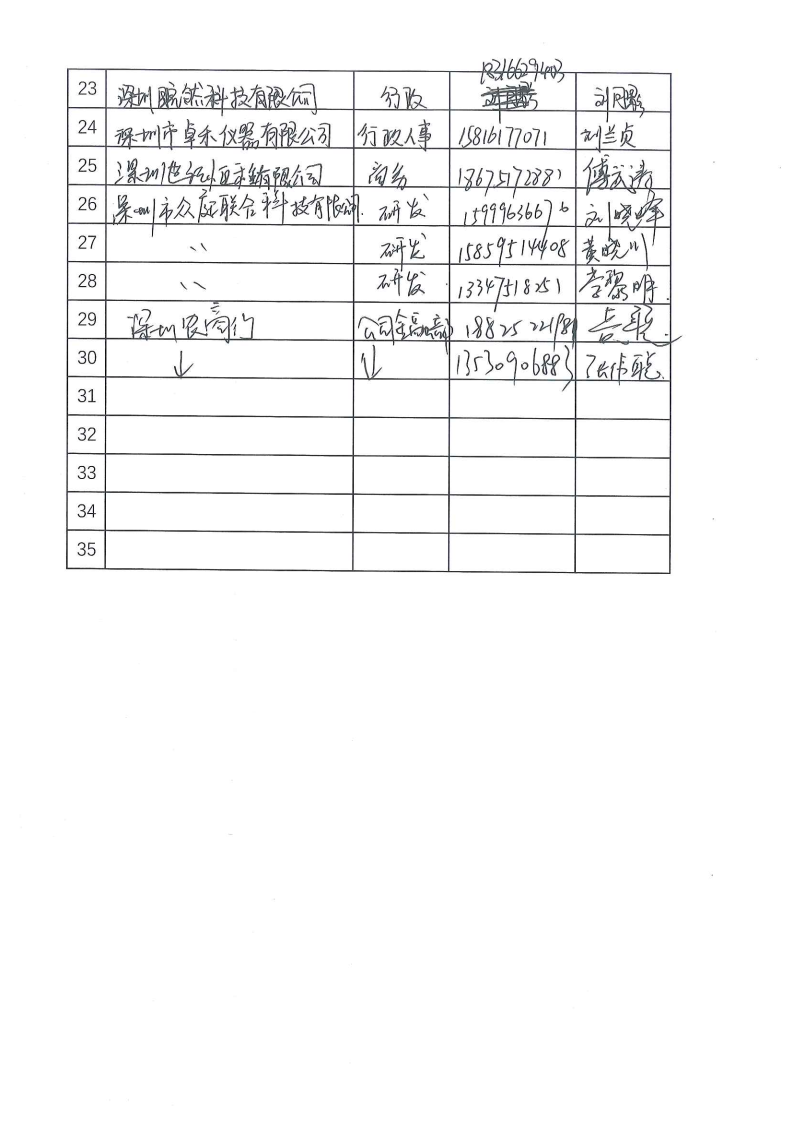 18316629403
23 深圳 然科技有限公司 行政 刘
24 深圳市卓禾仪器有限公司 行政人事 15816177071 刘兰贞
25 深圳世纪 有限公司 商务 18675172881 傅武涛
26 深圳市众 联合科技有限公司 研发 15999636676 刘晓峰
27 〃 研发 15859514408 黄晓川
28 〃 研发 13347518251 李黎明
29 深圳农商行 公司金融部 18825221981
30 ↓ ↓ 13530906883 张伟聪
31
32
33
34
35